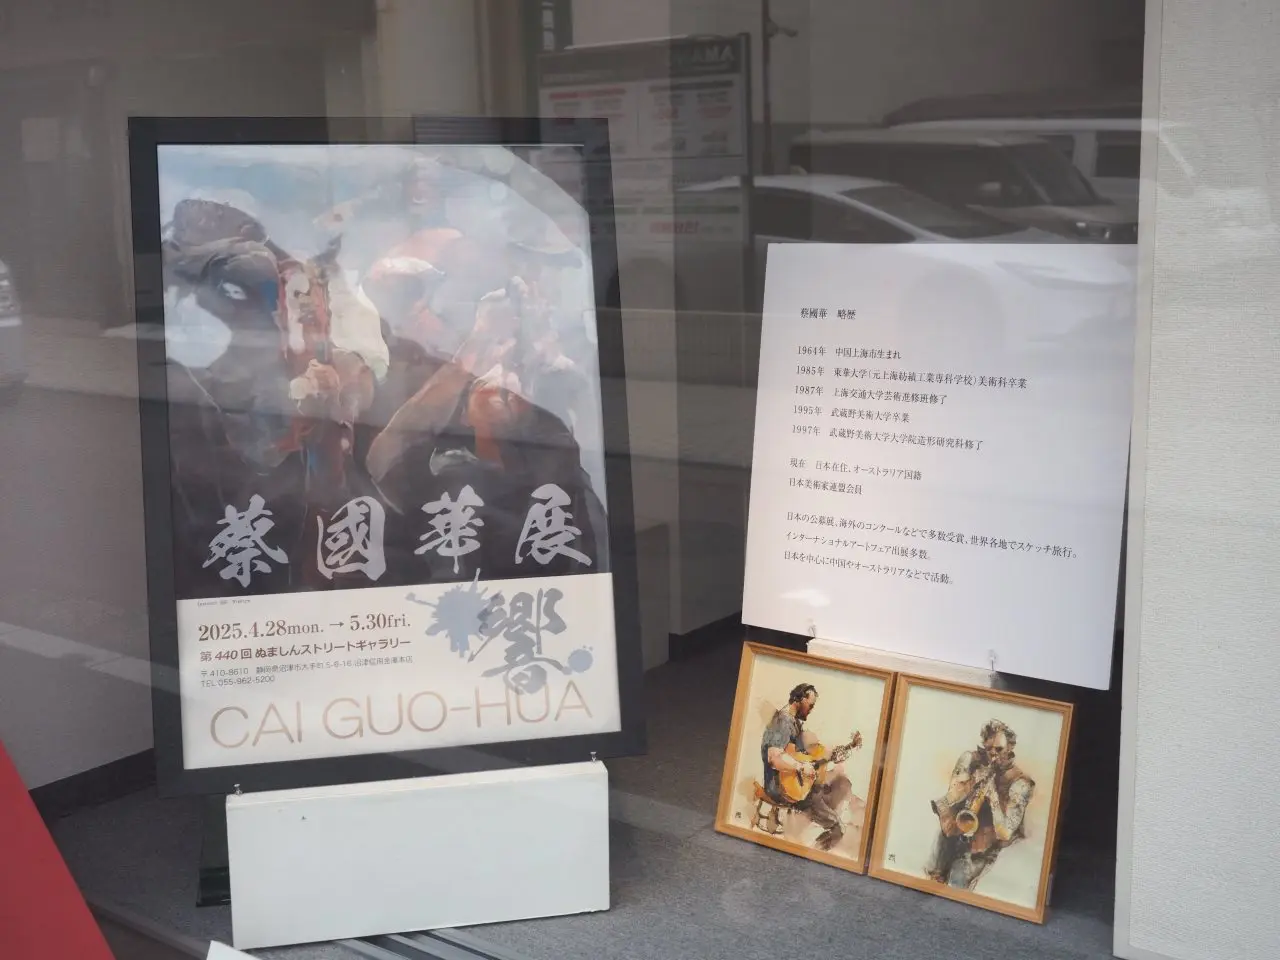 蔡國華展
響
2025.4.28mon. → 5.30fri.
第440回 ぬましんストリートギャラリー
〒410-8610 静岡県沼津市大手町5-6-16 沼津信用金庫本店
TEL 055-962-5200
CAI GUO-HUA
蔡國華 略歴
1964年 中国上海市生まれ
1985年 東華大学(元上海紡績工業専科学校)美術科卒業
1987年 上海交通大学芸術進修班修了
1995年 武蔵野美術大学卒業
1997年 武蔵野美術大学大学院造形研究科修了
現在 日本在住、オーストラリア国籍
日本美術家連盟会員
日本の公募展、海外のコンクールなどで多数受賞、世界各地でスケッチ旅行。
インターナショナルアートフェア出展多数。
日本を中心に中国やオーストラリアなどで活動。